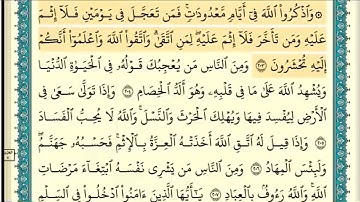 ۞ وَاذْكُرُوا اللَّهَ فِي أَيَّامٍ مَعْدُودَاتٍ ۚ فَمَن تَعَجَّلَ فِي يَوْمَيْنِ فَلَا إِثْمَ
عَلَيْهِ وَمَن تَأَخَّرَ فَلَا إِثْمَ عَلَيْهِ ۚ لِمَنِ اتَّقَىٰ ۗ وَاتَّقُوا اللَّهَ وَاعْلَمُوا أَنَّكُمْ
إِلَيْهِ تُحْشَرُونَ ٢٠٣ وَمِنَ النَّاسِ مَن يُعْجِبُكَ قَوْلُهُ فِي الْحَيَوٰةِ الدُّنْيَا
وَيُشْهِدُ اللَّهَ عَلَىٰ مَا فِي قَلْبِهِ وَهُوَ أَلَدُّ الْخِصَامِ ٢٠٤ وَإِذَا تَوَلَّىٰ سَعَىٰ فِي
الْأَرْضِ لِيُفْسِدَ فِيهَا وَيُهْلِكَ الْحَرْثَ وَالنَّسْلَ ۗ وَاللَّهُ لَا يُحِبُّ الْفَسَادَ
٢٠٥ وَإِذَا قِيلَ لَهُ اتَّقِ اللَّهَ أَخَذَتْهُ الْعِزَّةُ بِالْإِثْمِ ۚ فَحَسْبُهُ جَهَنَّمُ ۚ
وَلَبِئْسَ الْمِهَادُ ٢٠٦ وَمِنَ النَّاسِ مَن يَشْرِي نَفْسَهُ ابْتِغَاءَ مَرْضَاتِ
اللَّهِ ۗ وَاللَّهُ رَءُوفٌ بِالْعِبَادِ ٢٠٧ يَا أَيُّهَا الَّذِينَ ءَامَنُوا ادْخُلُوا فِي السِّلْمِ